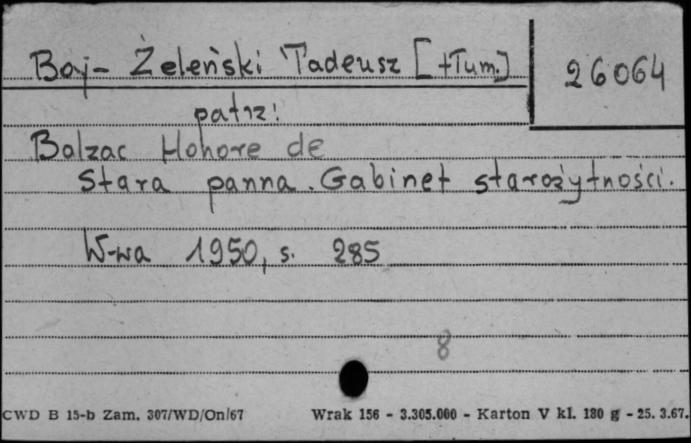 Boy-Żeleński Tadeusz [tłum.] 26064
patrz:
Balzac Honore de
Stara panna. Gabinet starożytności.
W-wa 1950, s. 285
8
CWD B 15-b Zam. 307/WD/On/67 Wrak 156 - 3.305.000 - Karton V kl. 180 g - 25. 3.67.